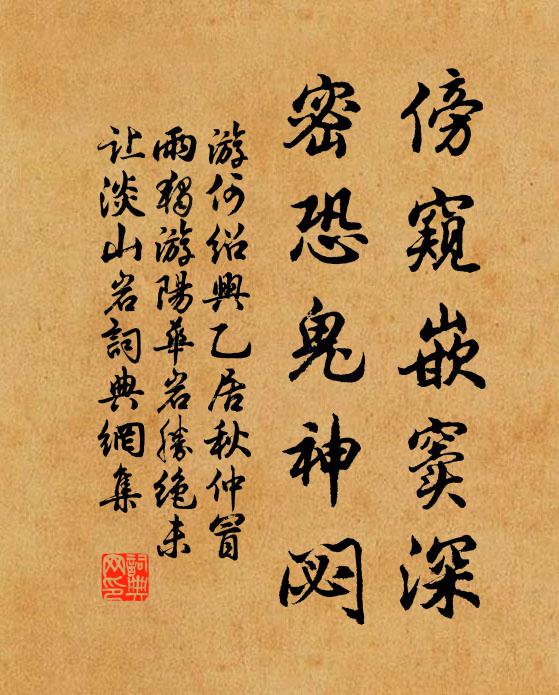 傍窺嵌竇深
密恐鬼神閟
游何紹興乙居秋仲冒
雨獨游陽華岩勝絶未
让淡山岩詞典網集
詞典
网印